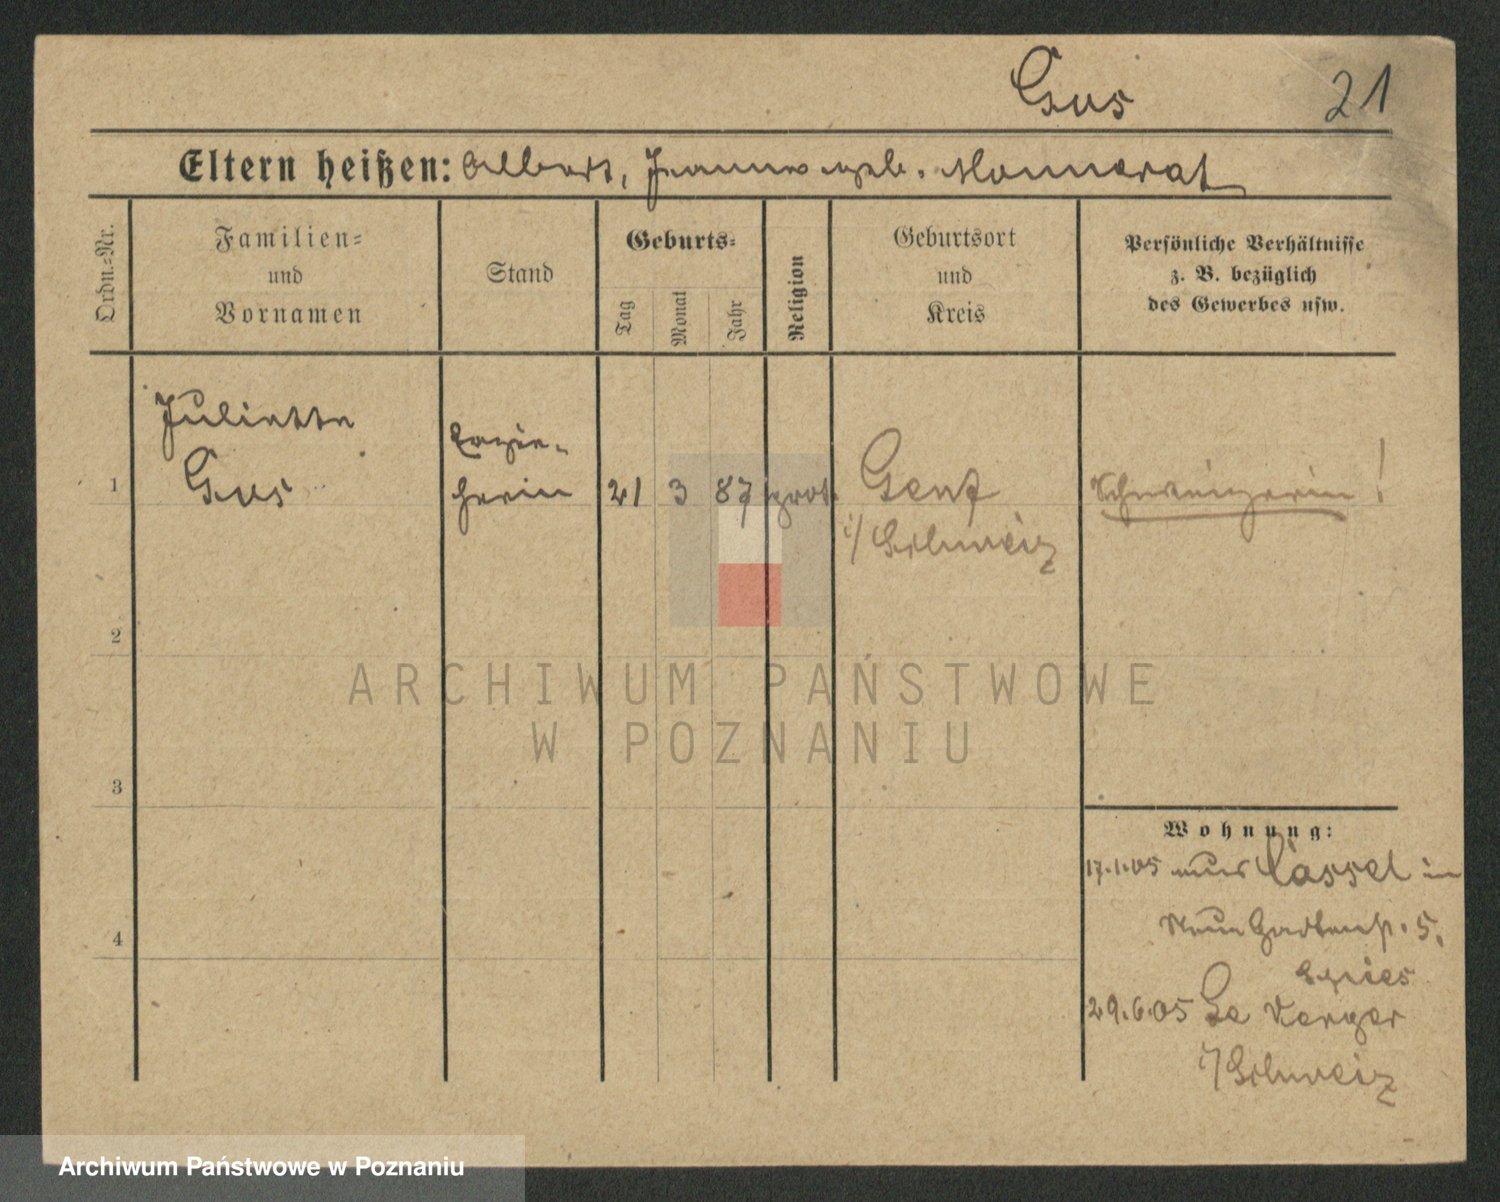 Gus
21
Eltern heißen: Albert, Jeanne geb. Monnerat
Ordn.-Nr.
Familien-
und
Vornamen
Stand
Geburts-
Tag
Monat
Jahr
Religion
Geburtsort
und
Kreis
Persönliche Verhältnisse
z. B. bezüglich
des Gewerbes usw.
1
Juliette
Gus
Erzie-
herin
21
3
87
prot.
Genf
i/ Schweiz
Schweizerin!
2
3
4
Wohnung:
17.1.05 aus Cassel in
Neue Gartenstr. 5.
Spies
29.6.05 Le Verger
i/ Schweiz
ARCHIWUM PAŃSTWOWE
W POZNANIU
Archiwum Państwowe w Poznaniu